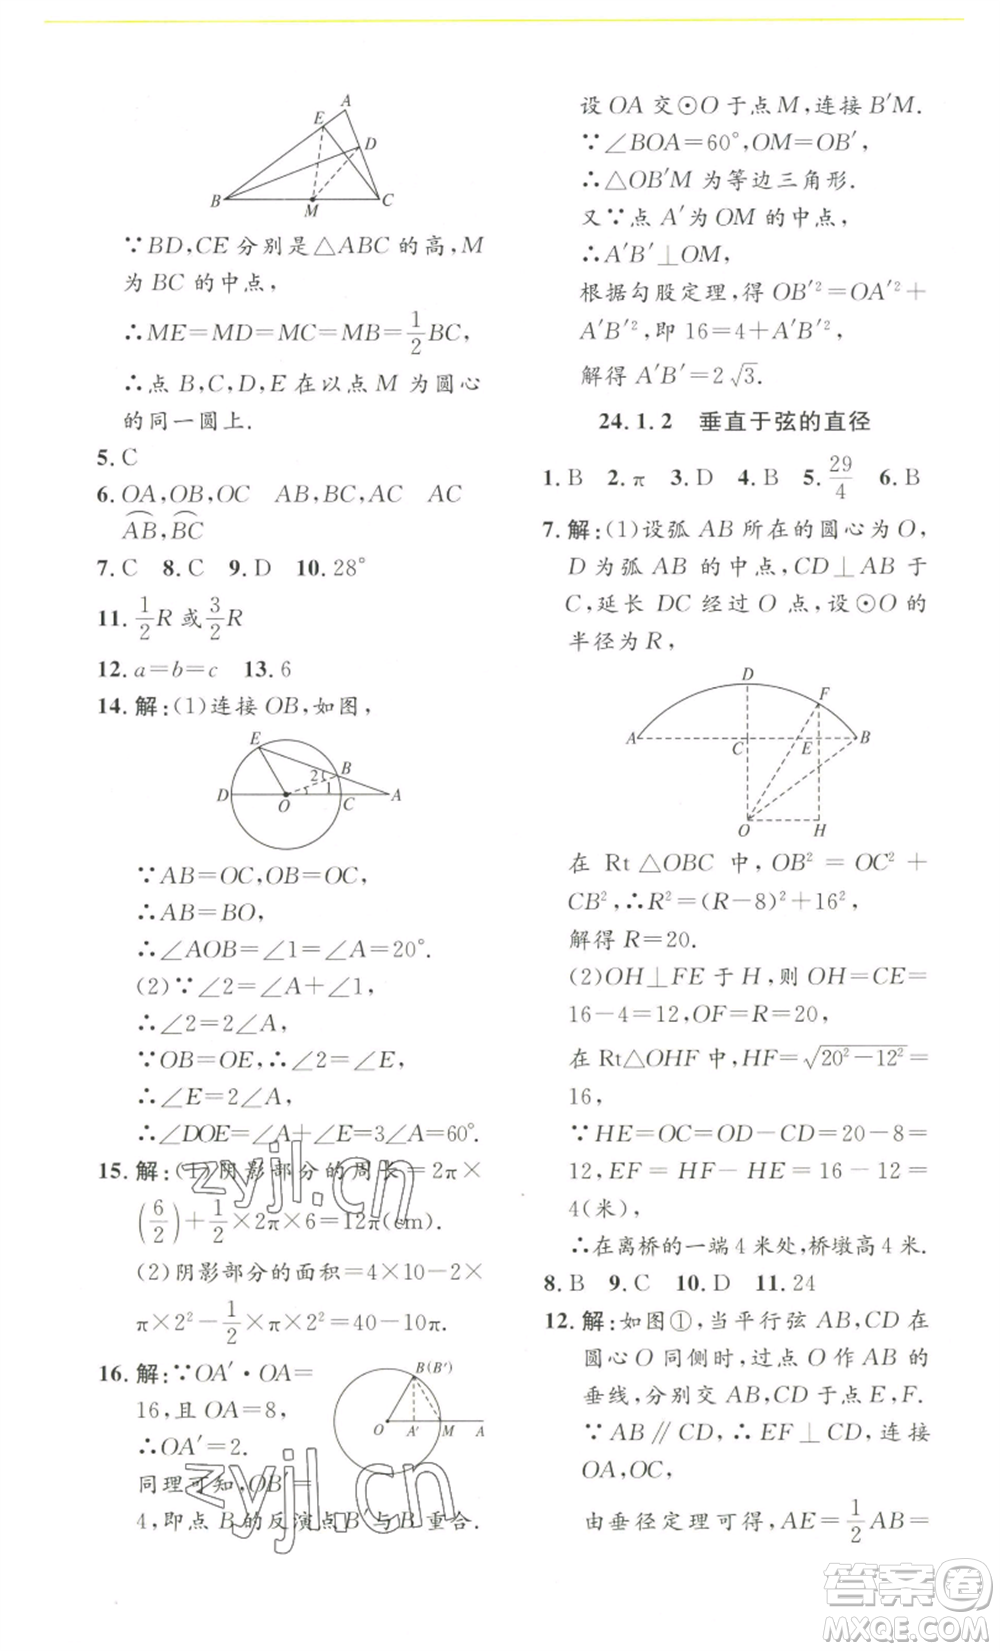 A
E
D
B
M
C
∵BD,CE分别是△ABC的高,M
为BC的中点,
∴ME=MD=MC=MB=1/2BC,
∴点B,C,D,E在以点M为圆心
的同一圆上.
5.C
6.OA,OB,OC AB,BC,AC AC
⌒AB,⌒BC
7.C 8.C 9.D 10.28°
11.1/2R或3/2R
12.a=b=c 13.6
14.解:(1)连接OB,如图,
E
B
2
1
D
O
C
A
∵AB=OC,OB=OC,
∴AB=BO,
∴∠AOB=∠1=∠A=20°.
(2)∵∠2=∠A+∠1,
∴∠2=2∠A,
∵OB=OE,∴∠2=∠E,
∴∠E=2∠A,
∴∠DOE=∠A+∠E=3∠A=60°.
15.解:(1)阴影部分的周长=2π×
(6/2)+1/2×2π×6=12π(cm).
(2)阴影部分的面积=4×10-2×
π×2²-1/2×π×2²=40-10π.
16.解:∵OA′·OA=
16,且OA=8,
∴OA′=2.
同理可知,OB′=
4,即点B的反演点B′与B重合.
B(B′)
O
A′
M
A
设OA交⊙O于点M,连接B′M.
∵∠BOA=60°,OM=OB′,
∴△OB′M为等边三角形.
又∵点A′为OM的中点,
∴A′B′⊥OM,
根据勾股定理,得OB′²=OA′²+
A′B′²,即16=4+A′B′²,
解得A′B′=2√3.
24.1.2 垂直于弦的直径
1.B 2.π 3.D 4.B 5.29/4 6.B
7.解:(1)设弧AB所在的圆心为O,
D为弧AB的中点,CD⊥AB于
C,延长DC经过O点,设⊙O的
半径为R,
D
F
A
C
E
B
O
H
在Rt△OBC中,OB²=OC²+
CB²,∴R²=(R-8)²+16²,
解得R=20.
(2)OH⊥FE于H,则OH=CE=
16-4=12,OF=R=20,
在Rt△OHF中,HF=√(20²-12²)=
16,
∵HE=OC=OD-CD=20-8=
12,EF=HF-HE=16-12=
4(米),
∴在离桥的一端4米处,桥墩高4米.
8.B 9.C 10.D 11.24
12.解:如图①,当平行弦AB,CD在
圆心O同侧时,过点O作AB的
垂线,分别交AB,CD于点E,F.
∵AB∥CD,∴EF⊥CD,连接
OA,OC,
由垂径定理可得,AE=1/2AB=
zyjl.cn
zyjl.cn
答案圈
MXQE.COM